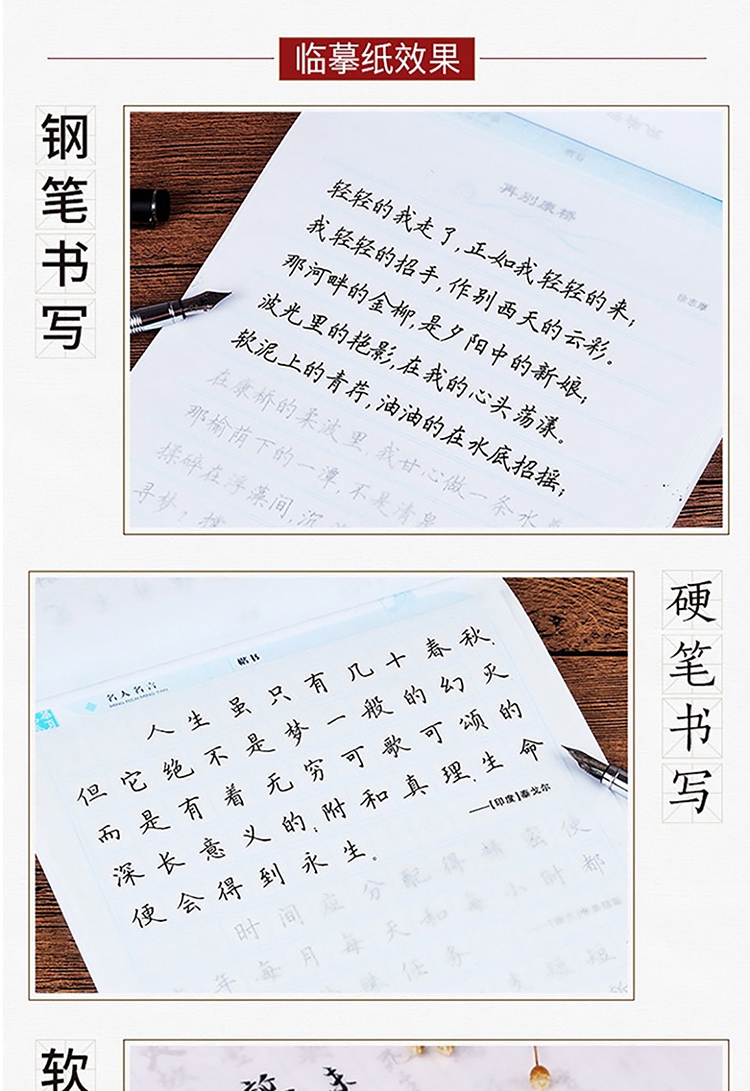 临摹纸效果
钢笔书写
再别康桥
徐志摩
轻轻的我走了,正如我轻轻的来;
我轻轻的招手,作别西天的云彩。
那河畔的金柳,是夕阳中的新娘;
波光里的艳影,在我的心头荡漾。
软泥上的青荇,油油的在水底招摇;
在康桥的柔波里,我甘心做一条水
那榆荫下的一潭,不是清泉
揉碎在浮藻间,沉
寻梦?撑
硬笔书写
名人名言
MING REN MING YAN
楷书
人生虽只有几十春秋,
但它绝不是梦一般的幻灭
而是有着无穷可歌可颂的
深长意义的;附和真理,生命
便会得到永生。
——[印度]泰戈尔
时间应分配得精密使
年每月每天和每小时都
任务
软